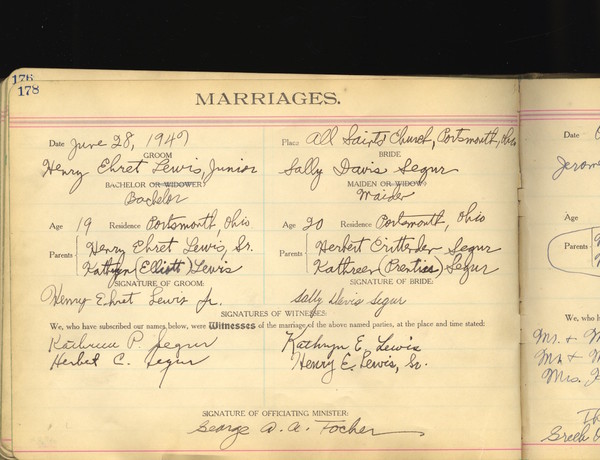 176
178
MARRIAGES.
Date June 28, 1947 Place All Saints Church, Portsmouth, Ohio
GROOM BRIDE
Henry Ehret Lewis, Junior Sally Davis Segur
BACHELOR OR WIDOWER? MAIDEN OR WIDOW?
Bachelor Maiden
Age 19 Residence Portsmouth, Ohio Age 20 Residence Portsmouth, Ohio
Parents Henry Ehret Lewis, Sr. Parents Herbert Crittenden Segur
Kathryn (Elliott) Lewis Kathreen (Prentiss) Segur
SIGNATURE OF GROOM: SIGNATURE OF BRIDE:
Henry Ehret Lewis Jr. Sally Davis Segur
SIGNATURES OF WITNESSES:
We, who have subscribed our names below, were Witnesses of the marriage of the above named parties, at the place and time stated:
P. Segur Kathryn E. Lewis
Herbert C. Segur Henry E. Lewis, Sr.
SIGNATURE OF OFFICIATING MINISTER:
George D. A.
Date
Age
Parents
We, who h
Mr. &
Mrs.